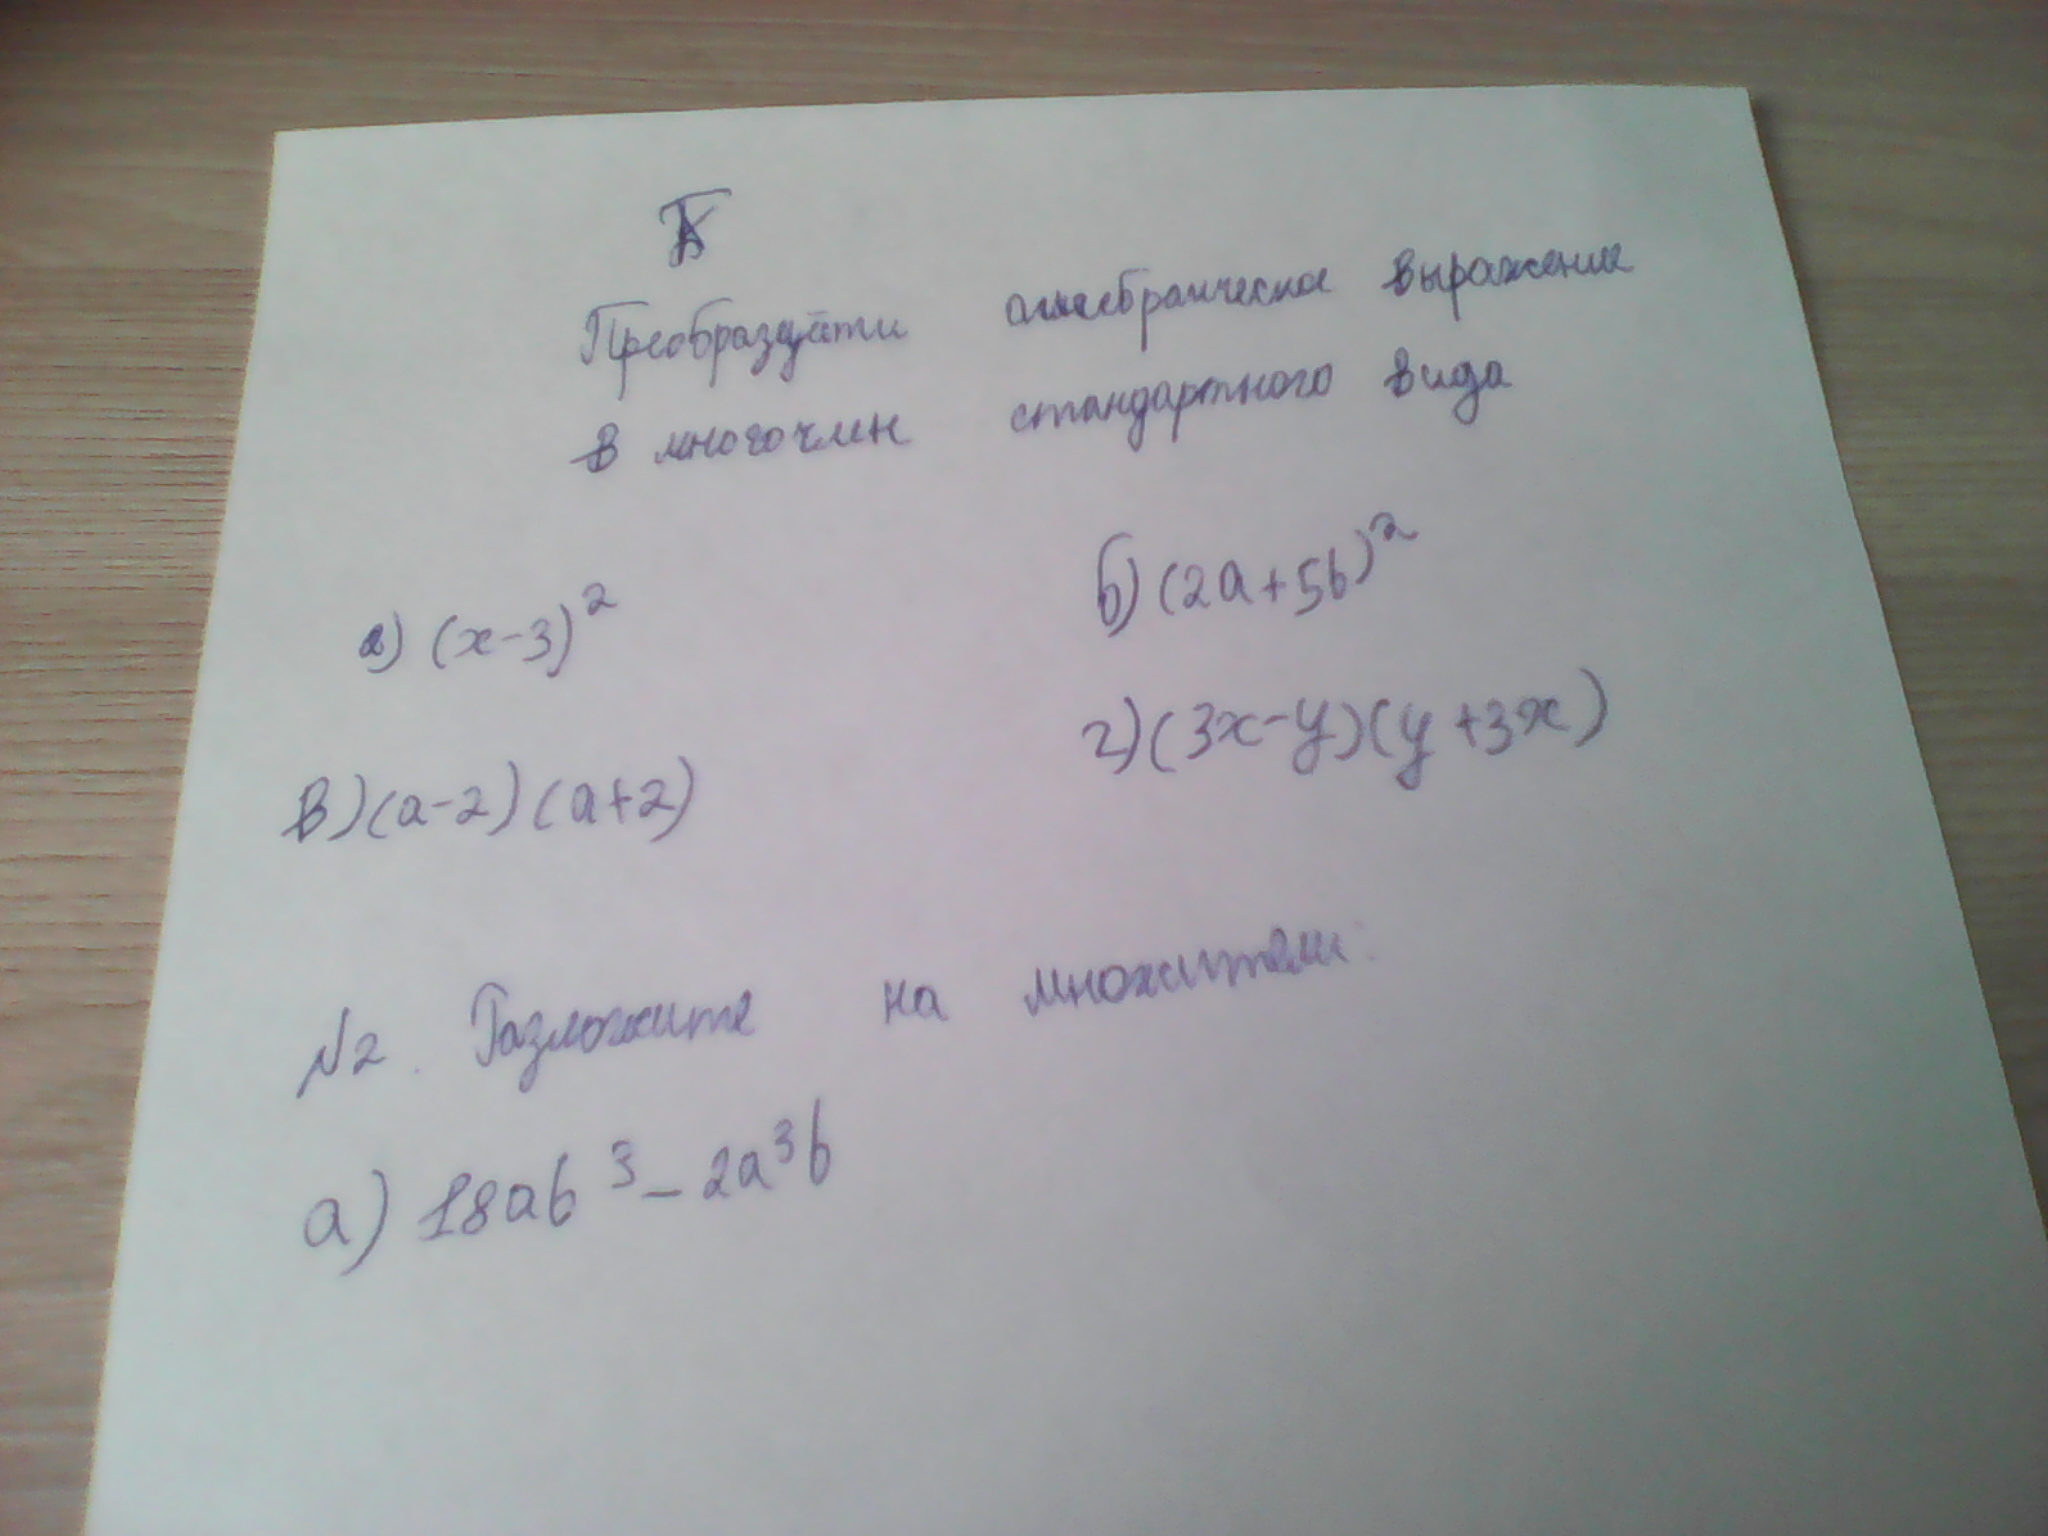 Преобразуйти алгебраическое выражение
в многочлен стандартного вида
а) (x-3)² б) (2a+5b)²
в) (a-2) (a+2) г) (3x-y)(y+3x)
№2. Разложите на множители:
а) 18ab³ - 2a³b